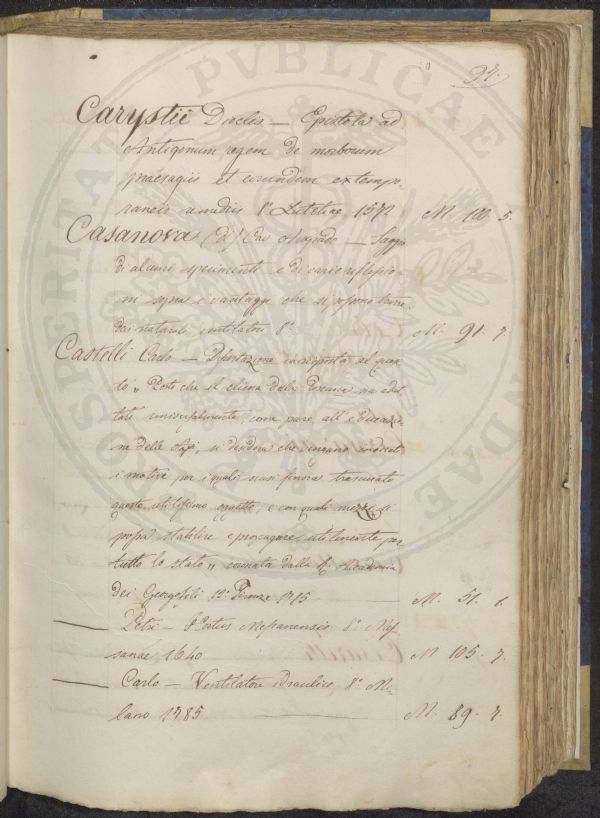 97.
Carystii Diocles — Epistola ad
Antigonum regem de morborum
praesagiis et eorundem extempo-
raneis remediis 8° Lutetiae 1572 M. 100. 5.
Casanova (di) Cav — Saggio
di alcuni esperimenti e di varie riflessio-
ni sopra i vantaggi che si possono trarre
dai naturali ventilatori 8° M. 91. 7.
Castelli Carlo — Dissertazione in risposta al quesi-
to „ Posto che il clima della Toscana sia adat-
tato universalmente, come pare, all' educazio-
ne delle Api, si desidera che vengano
i motivi per i quali siasi finora trascurato
questo utilissimo oggetto, e con quali mezzi si
possa stabilire e propagare utilmente per
tutto lo stato „ coronata dalla R. Accademia
dei Georgofili 12° Firenze 1785 M. 51. 6.
— Petri — Messanensis 8° Mes-
sanae 1640 M 105. 7.
— Carlo — Ventilatore idraulico, 8° Mi-
lano 1785 M. 89. 7.
PVBLICAE
PROSPERITATI